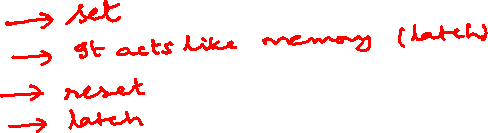 → set
→ It acts like memory (latch)
→ reset
→ latch